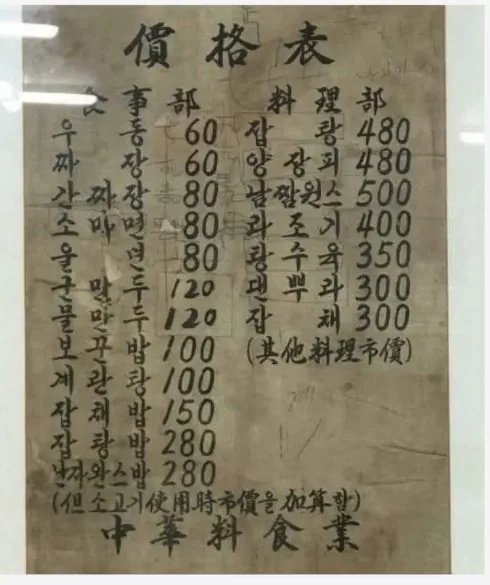 價格表
食事部
우동 60
짜장 60
간짜장 80
소마면 80
울면 80
군만두 120
물만두 120
보끈밥 100
계란탕 100
잡채밥 150
잡탕밥 280
난자완스밥 280
料理部
잡탕 480
양장피 480
남짤원스 500
라조기 400
탕수육 350
댄뿌라 300
잡채 300
(其他料理市價)
(但 소고기使用時市價을 加算함)
中華料食業